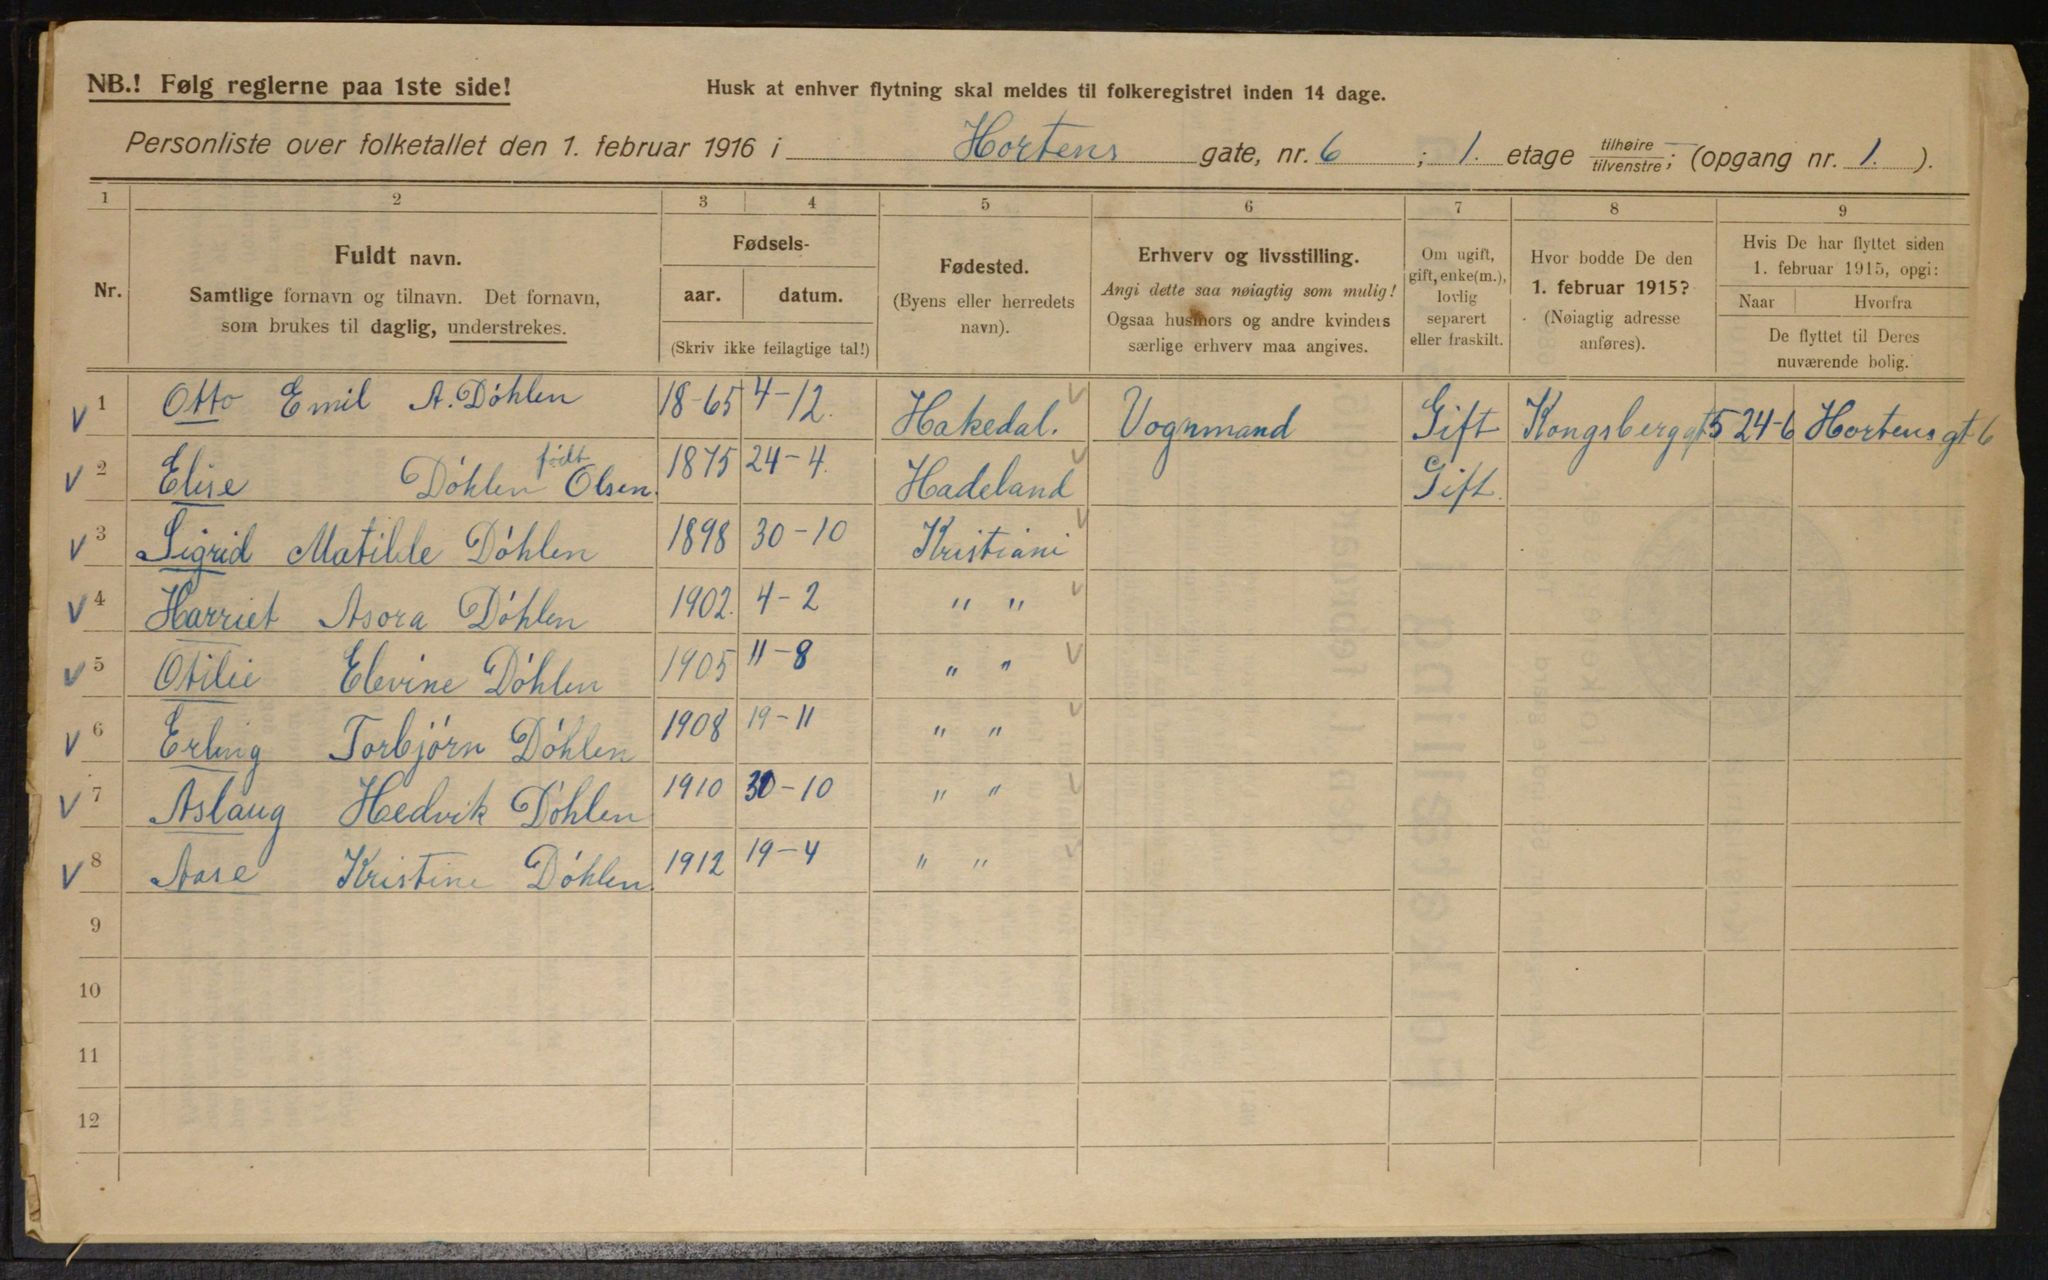 NB.! Følg reglerne paa 1ste side!
Husk at enhver flytning skal meldes til folkeregistret inden 14 dage.
Personliste over folketallet den 1. februar 1916 i Hortens gate, nr. 6 ; 1. etage tilhøire/tilvenstre; (opgang nr. 1. ).
1 2 3 4 5 6 7 8 9
Nr.
Fuldt navn.
Samtlige fornavn og tilnavn. Det fornavn,
som brukes til daglig, understrekes.
Fødsels-
aar. datum.
(Skriv ikke feilagtige tal!)
Fødested.
(Byens eller herredets
navn).
Erhverv og livsstilling.
Angi dette saa nøiagtig som mulig!
Ogsaa husmors og andre kvinders
særlige erhverv maa angives.
Om ugift,
gift, enke(m.),
lovlig
separert
eller fraskilt.
Hvor bodde De den
1. februar 1915?
(Nøiagtig adresse
anføres).
Hvis De har flyttet siden
1. februar 1915, opgi:
Naar Hvorfra
De flyttet til Deres
nuværende bolig.
V 1 Otto Emil A. Döhlen 18-65 4-12. Hakedal. Vognmand Gift Kongsberggt 5 24-6 Hortensgt 6
V 2 Elise Döhlen født Olsen. 1875 24-4. Hadeland Gift.
V 3 Sigrid Matilde Döhlen 1898 30-10 Kristiani
V 4 Harriet Asora Döhlen 1902. 4-2 " "
V 5 Otilie Elevine Döhlen 1905 11-8 " "
V 6 Erling Torbjörn Döhlen 1908 19-11 " "
V 7 Aslaug Hedvik Döhlen 1910 30-10 " "
V 8 Aase Kristine Döhlen. 1912 19-4 " "
9
10
11
12